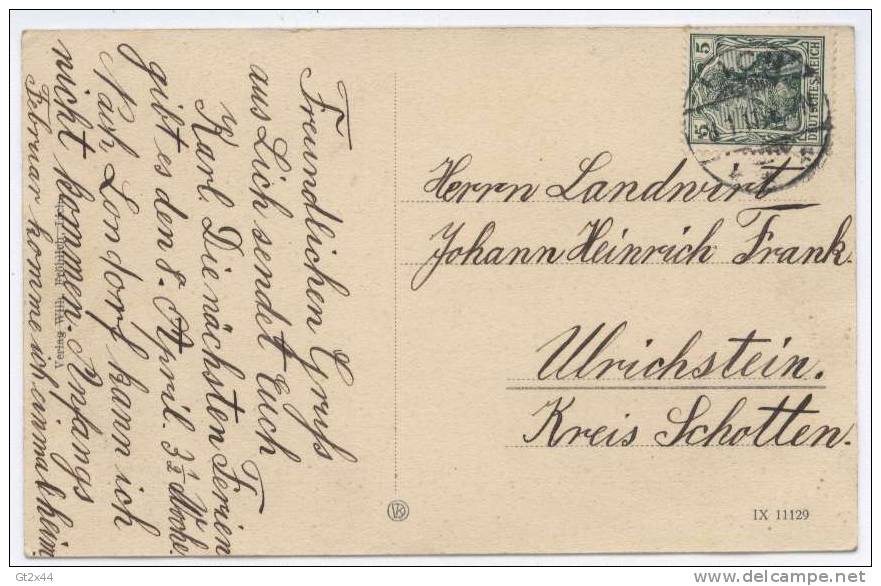 Freundlichen Gruß
aus Lich sendet Euch
Karl. Die nächsten Ferien
gibt es den 8. April. 3½ Woche.
Nach Londorf kann ich
nicht kommen. Anfangs
Februar komme ich einmal heim.
Herrn Landwirt
Johann Heinrich Frank.
Ulrichstein.
Kreis Schotten.
5 5
DEUTSCHES REICH
IX 11129
Gt2x44
delcampe.net